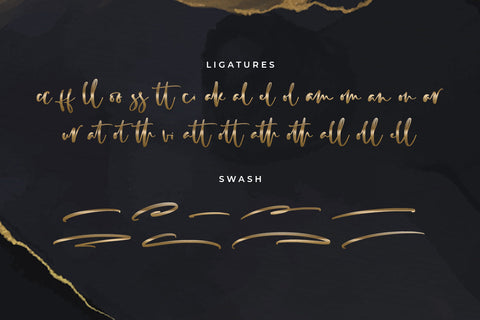 LIGATURES
cc ff ll oo ss tt ci ak al el ol am om an on ar
ur at ot th vi att ott ath oth all oll ell
SWASH